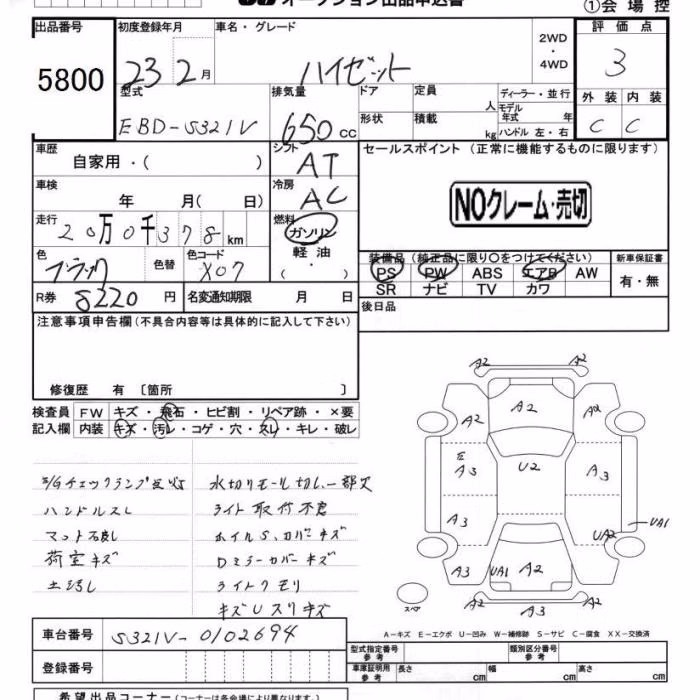 オークション出品申込書
①会場控
出品番号 初度登録年月 車名・グレード 2WD・4WD 評価点
5800 23 2月 ハイゼット 3
型式 排気量 ドア 定員 人 ディーラー・並行 外装 内装
EBD-S321V 650cc 形状 積載 kg モデル年式 年 ハンドル 左・右 C C
車歴 自家用・( ) シフト AT セールスポイント(正常に機能するものに限ります)
車検 年 月(日) 冷房 AC
NOクレーム・売切
走行 20万0千378km 燃料 ガソリン・軽油・
色 ブラック 色替 色コード X07
装備品(純正品に限り○をつけてください) 新車保証書
PS PW ABS エアB AW 有・無
SR ナビ TV カワ
R券 8220円 名変通知期限 月 日 後日品
注意事項申告欄(不具合内容等は具体的に記入して下さい)
修復歴 有 〔箇所 〕
検査員 FW キズ・飛石・ヒビ割・リペア跡・×要
記入欄 内装 キズ・汚レ・コゲ・穴・スレ・キレ・破レ
チェックランプ 水切りモール切レ一部欠
ハンドルスレ ライト取付不良
マット 汚レ ホイルS、カバーキズ
荷室キズ Dミラーカバーキズ
ライトクモリ
キズUスリキズ
A2 A2
A2 A2 A2
A3 U2 A3
A3 UA2 UA1
A3 UA1 A2
A2 A3 A2
スペア
A-キズ E-エクボ U-凹み W-補修跡 S-サビ C-腐食 XX-交換済
車台番号 S321V-0102694
型式指定番号 参考 類別区分番号 参考
登録番号 車庫証明用 参考 長さ cm 幅 cm 高さ cm
希望出品コーナー(コーナーは各会場により異なります)